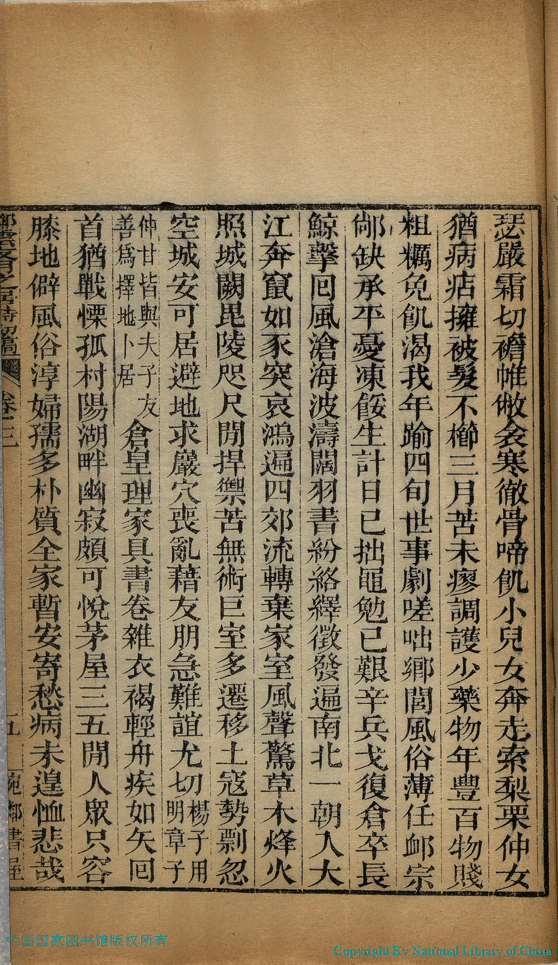 瑟嚴霜切襜帷敝衾寒徹骨啼飢小兒女奔走索梨栗仲女
猶病痁擁被髮不櫛三月苦未瘳調護少藥物年豐百物賤
粗糲免飢渴我年踰四旬世事劇嗟咄鄉閭風俗薄任卹宗
邮缺承平憂凍餒生計日已拙黽勉已艱辛兵戈復倉卒長
鯨擊回風滄海波濤闊羽書紛絡繹徵發遍南北一朝入大
江奔竄如豕突哀鴻遍四郊流轉棄家室風聲驚草木烽火
照城闕毘陵咫尺間捍禦苦無術巨室多遷移土寇勢剽忽
空城安可居避地求嚴穴喪亂藉友朋急難誼尤切楊子用明章子
仲甘皆與夫子友善為擇地卜居倉皇理家具書卷雜衣褐輕舟疾如矢回
首猶戰慄孤村陽湖畔幽寂頗可悅茅屋三五間人眾只容
膝地僻風俗淳婦孺多朴質全家暫安寄愁病未遑恤悲哉
卷三
五
宛鄰書屋
中國国家图书馆版权所有
Copyright By National Library of China